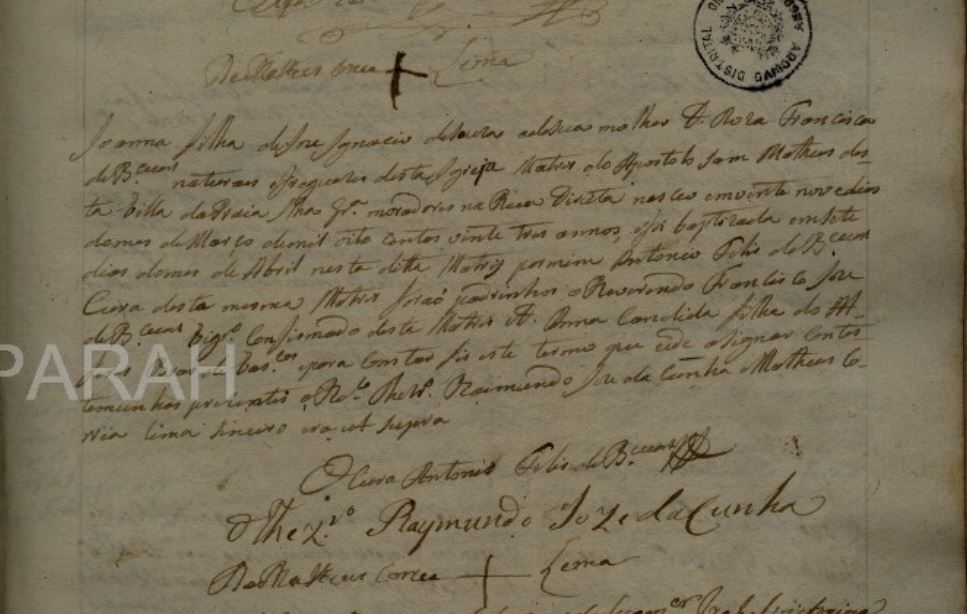 De Matheus Correa + Lima
ARCHIVO DISTRITAL
Joanna filha de Joze Ignacio de Souza e de sua molher D. Roza Francisca
de B.cellos naturaes e freguezes desta Igreja Matris do Apostolo Sam Matheus des-
ta Villa da Praia Ilha Gr.a moradores na Rua Direita nasceo em vinte nove dias
do mes de Março de mil oito centos vinte tres annos, e foi baptizada em sete
dias do mes de Abril nesta ditta Matris por mim Antonio Felis de B.cellos
Cura desta mesma Matris forão padrinhos o Reverendo Francisco Joze
de B.cellos Vigr.o Confirmado desta Matris e D. Anna Candida filha do Al-
de Vas.cos e para constar fis este termo que eide asignar com tes-
temunhas prezentes o R.do Thez.ro Raimundo Joze da Cunha e Matheus Co-
rreia Lima Sineiro era ut supra
O Cura Antonio Felis de B.cellos
O Thez.ro Raymundo Joze da Cunha
De Matheus Correa + Lima
PARAH